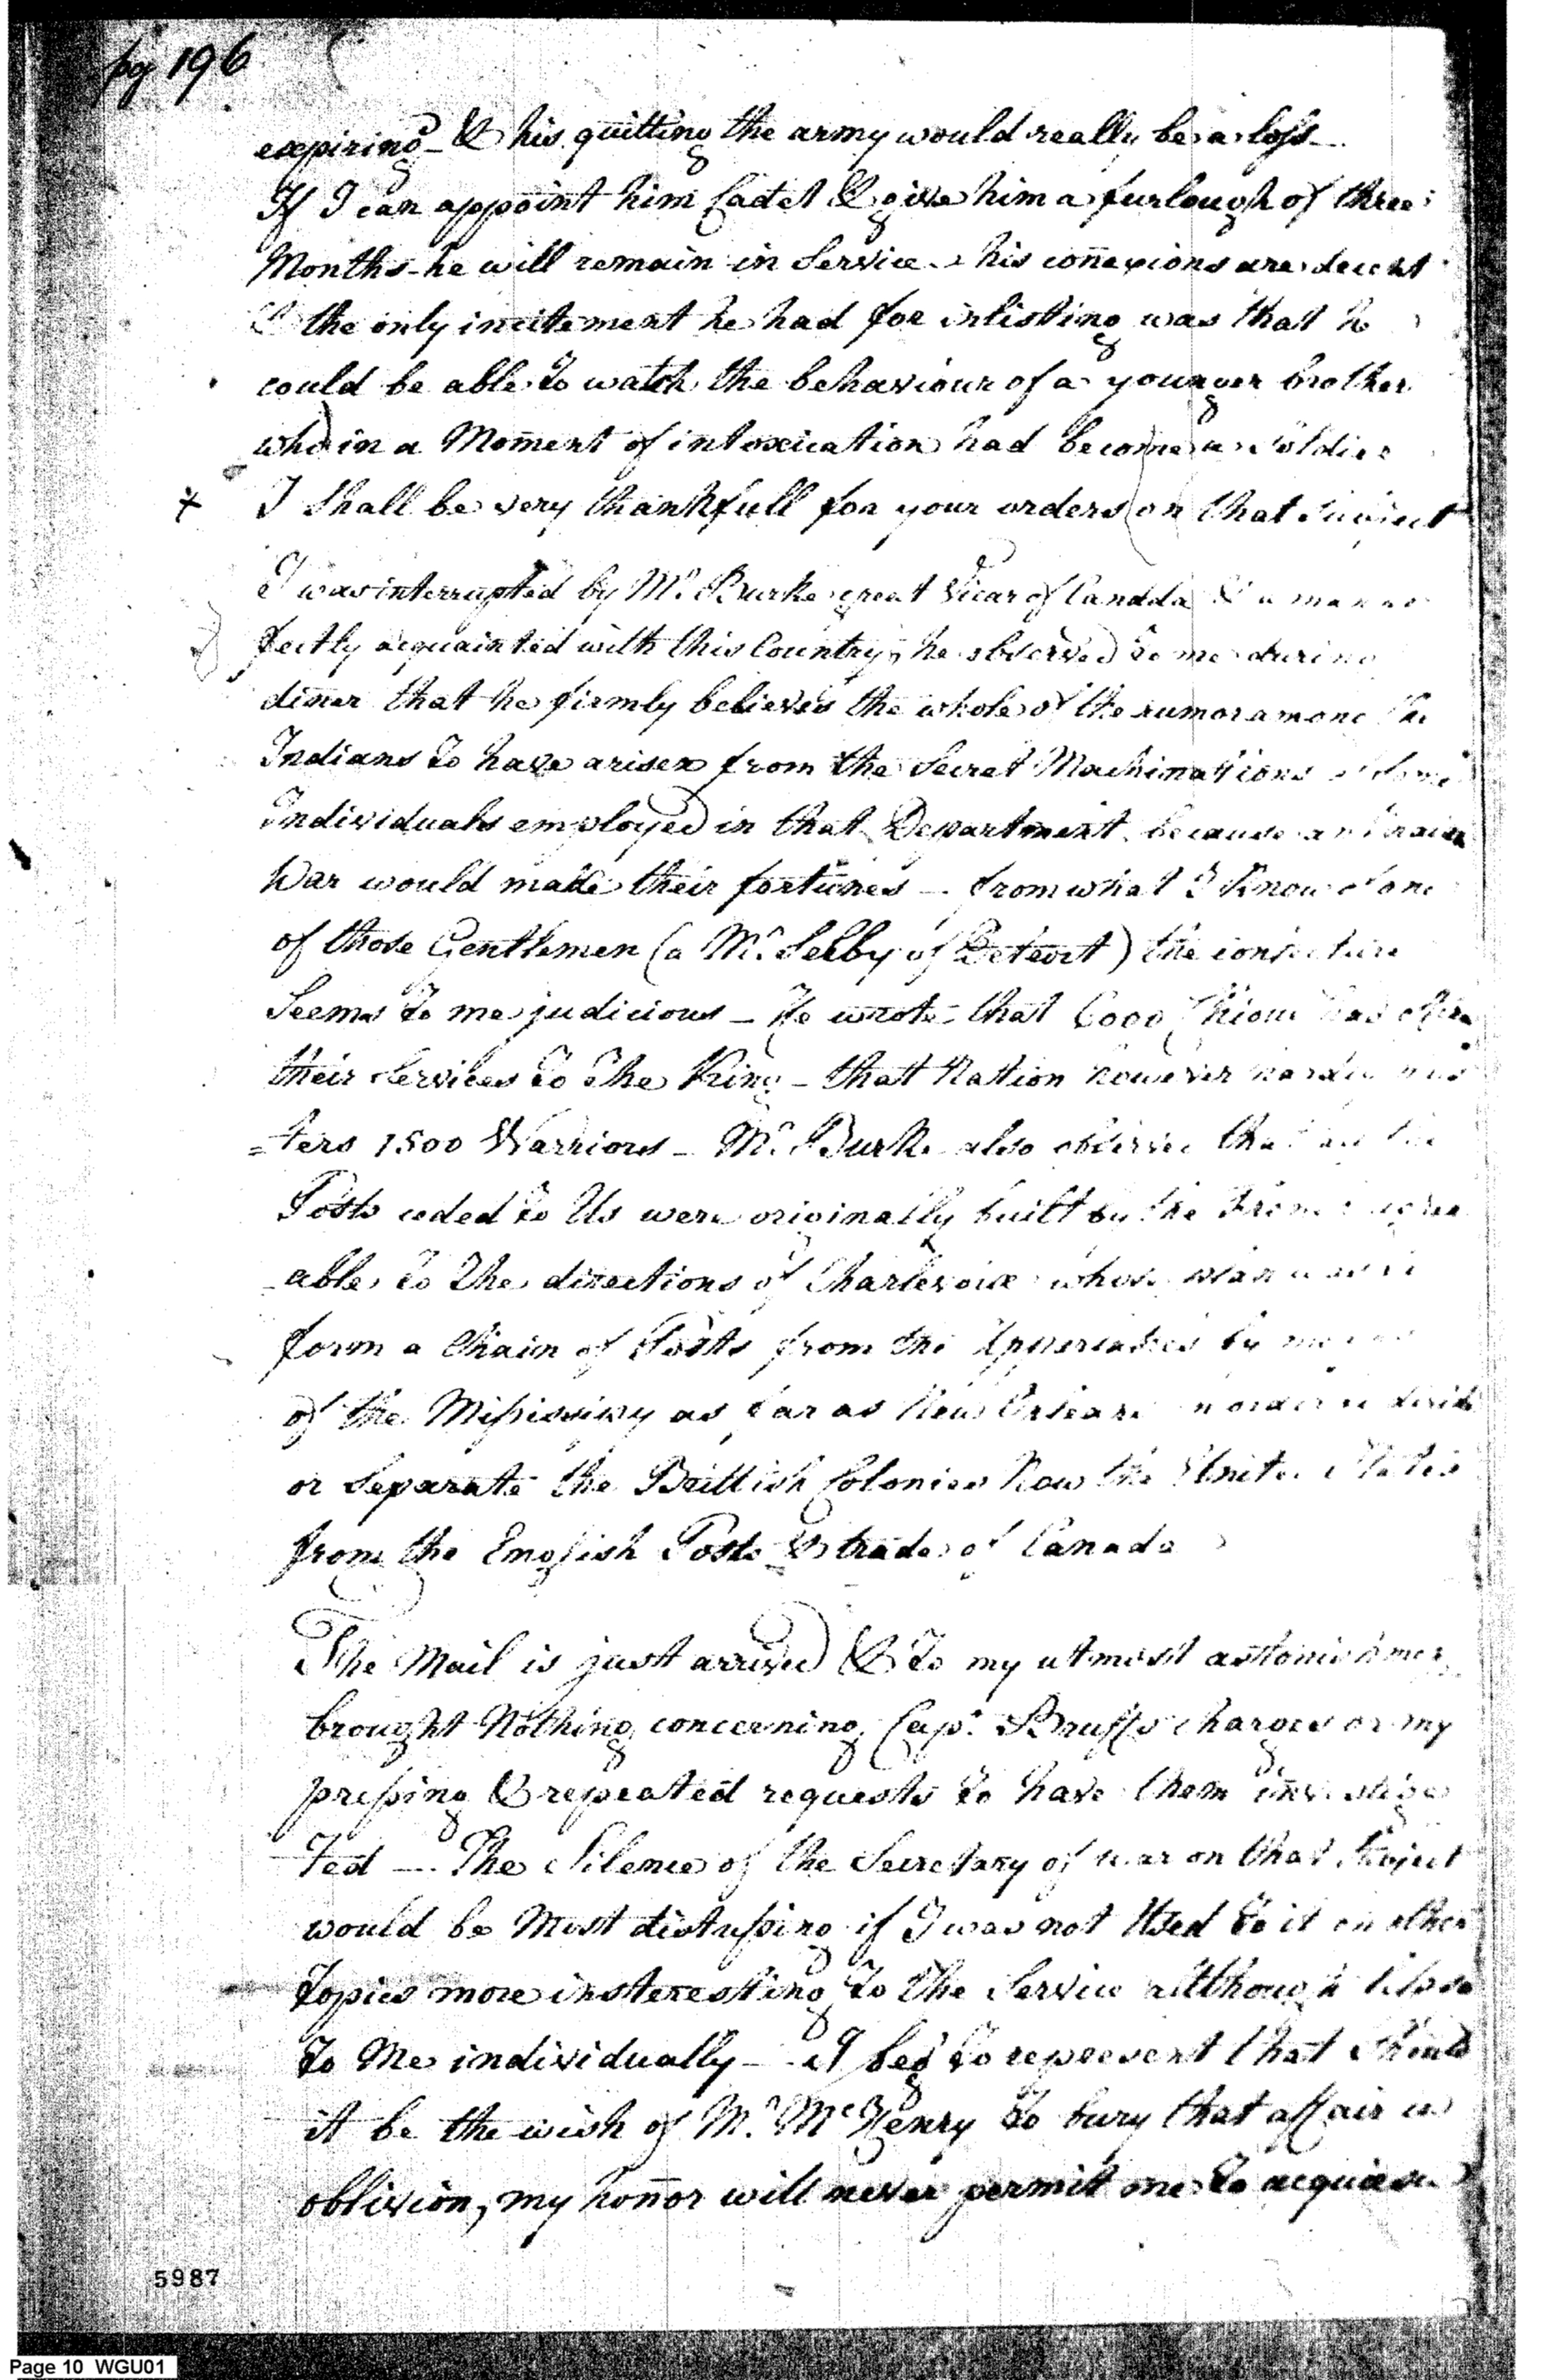 pg 196
expiring – & his quitting the army would really be a loss –
If I can appoint him Cadet & give him a furlough of three
Months he will remain in Service – his connexions are decent
& the only incitement he had for inlisting was that he
could be able to watch the behaviour of a younger brother
who in a Moment of intoxication had become a Soldier
x I Shall be very thankfull for your orders on that Subject
I was interrupted by Mr. Burke great Vicar of Canada & a man
fectly acquainted with this Country, he observed to me during
diner that he firmly believes the whole of the rumor among the
Indians to have arisen from the Secret Machinations of Some
Individuals employed in that Department, because an Indian
War would made their fortunes – from what I Know of one
of those Gentlemen (a Mr. Selby of Detroit) the conjecture
Seems to me judicious – He wrote that 6000 has
their Services to The King – that Nation however hardly mus
=ters 1500 Warriors – Mr. Burke also observed that all the
Posts ceded to Us were originally built by the French agree
-able to The directions of Charlevoix whose plan was to
form a Chain of Posts from the by
of the Missisipy as far as New Orleans in order to divide
or Separate the Brittish Colonies Now the United States
from the English Posts & trade of Canada
The Mail is just arrived & to my utmost astonishmen
brought Nothing concerning Capt. Bruff's charges or my
pressing & repeated requests to have them investiga
ted – The Silence of the Secretary of war on that Subject
would be Most distressing if I was not Used to it on other
topics more insteresting to the Service although less so
to Me individually – I beg to represent that Should
it be the wish of Mr. McHenry to bury that affair in
oblivion, my honnor will never permit me to acquiesce
5987
Page 10 WGU01